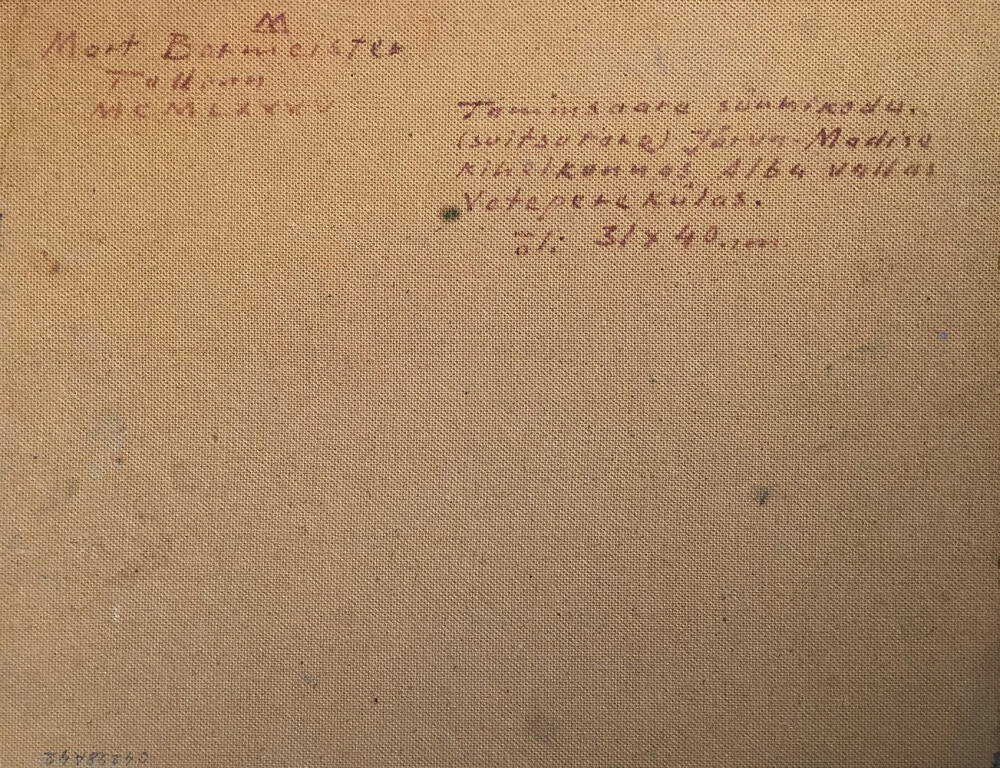 M
Mart Bormeister
Tallinn
MCMLXXXV
Tammsaare sünnikodu.
(suitsutare) Järva-Madise
kihelkonnas Alba vallas
Vetepere külas.
õli 31 x 40. cm